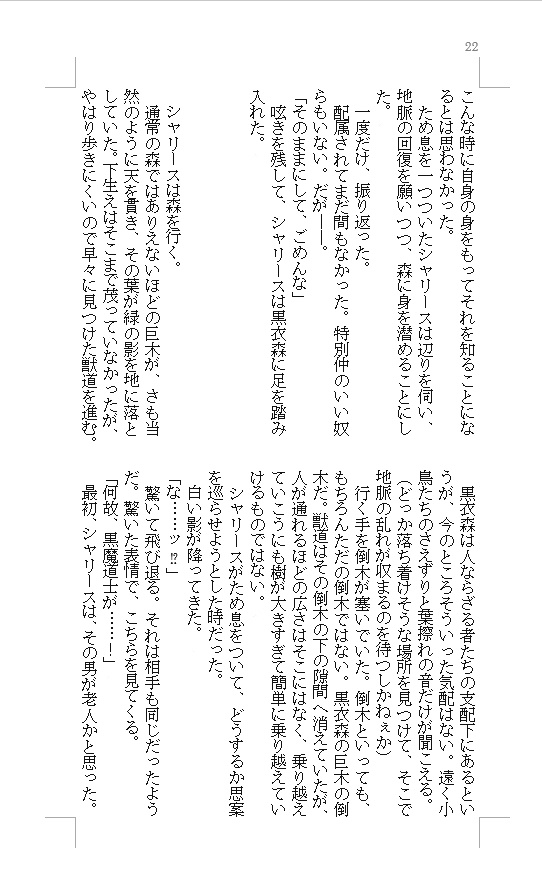 22
こんな時に自身の身をもってそれを知ることにな
るとは思わなかった。
　ため息を一つついたシャリースは辺りを伺い、
地脈の回復を願いつつ、森に身を潜めることにし
た。
　一度だけ、振り返った。
　配属されてまだ間もなかった。特別仲のいい奴
らもいない。だが――。
「そのままにして、ごめんな」
　呟きを残して、シャリースは黒衣森に足を踏み
入れた。
　シャリースは森を行く。
　通常の森ではありえないほどの巨木が、さも当
然のように天を貫き、その葉が緑の影を地に落と
していた。下生えはそこまで茂っていなかったが、
やはり歩きにくいので早々に見つけた獣道を進む。
　黒衣森は人ならざる者たちの支配下にあるとい
うが、今のところそういった気配はない。遠く小
鳥たちのさえずりと葉擦れの音だけが聞こえる。
（どっか落ち着けそうな場所を見つけて、そこで
地脈の乱れが収まるのを待つしかねぇか）
　行く手を倒木が塞いでいた。倒木といっても、
もちろんただの倒木ではない。黒衣森の巨木の倒
木だ。獣道はその倒木の下の隙間へ消えていたが、
人が通れるほどの広さはそこにはなく、乗り越え
ていこうにも樹が大きすぎて簡単に乗り越えてい
けるものではない。
　シャリースがため息をついて、どうするか思案
を巡らせようとした時だった。
　白い影が降ってきた。
「な……ッ⁉」
　驚いて飛び退る。それは相手も同じだったよう
だ。驚いた表情で、こちらを見てくる。
「何故、黒魔道士が……！」
　最初、シャリースは、その男が老人かと思った。